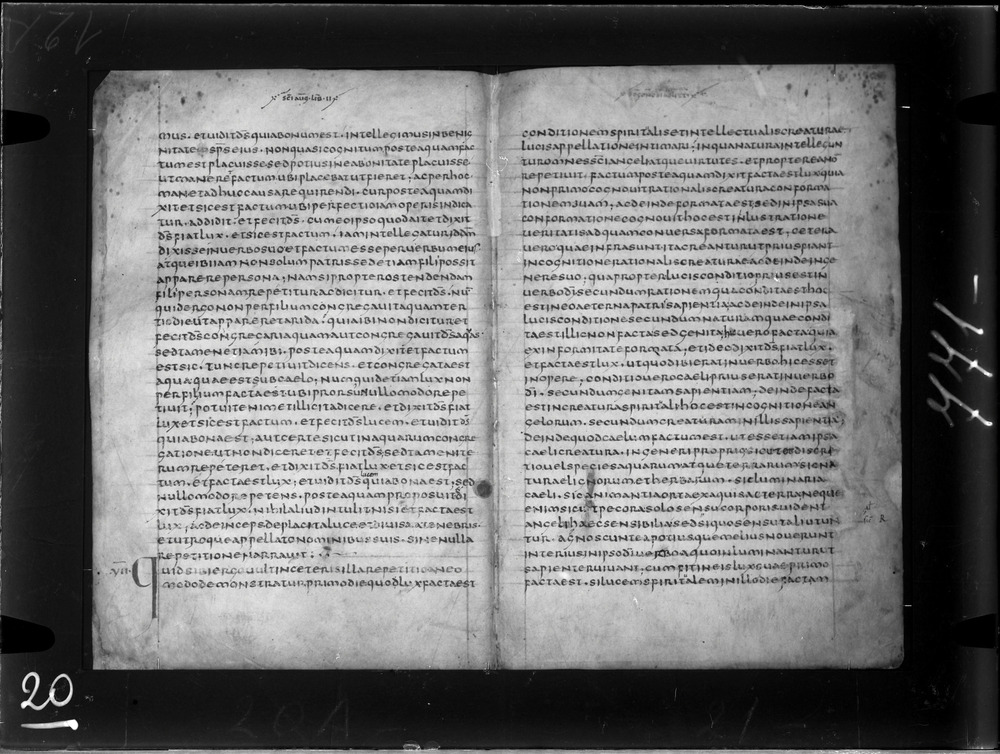 SCI AUG LIB II
MUS. ETUIDITDSQUIABONUMEST. INTELLEGIMUSINBENIG
NITATE SPSEIUS. NONQUASICOGNITUMPOSTEAQUAMFAC
TUMESTPLACUISSESEDPOTIUSINEABONITATEPLACUISSE
UTMANEREFACTUMUBIPLACEBATUTFIERET, ACPERHOC
MANETADHUCCAUSAREQUIRENDI. CURPOSTEAQUAMDI
XITETSICESTFACTUMUBIPERFECTIOIAMOPERISINDICA
TUR. ADDIDIT. ETFECITDS. CUMEOIPSOQUODAITETDIXIT
DSFIATLUX. ETSICESTFACTUM. IAMINTELLEGATURIDAM
DIXISSEINUERBOSUOETFACTUMESSEPERUERBUMEIUS
ATQUEIBIIAMNONSOLUMPATRISSEDETIAMFILIPOSSIT
APPAREREPERSONA; NAMSIPROPTEROSTENDENDAM
FILIPERSONAMREPETITURACDICITUR. ETFECITDS. NU
QUIDERGONONPERFILIUMCONGREGAUITAQUAMTER
TIODIEUTAPPARERETARIDA. QUIAIBINONDICITURET
FECITDSCONGREGARIAQUAMAUTCONGREGAUITDSAQUAS
SEDTAMENETIAMIBI. POSTEAQUAMDIXITETFACTUM
ESTSIC. TUNCREPETIUITDICENS. ETCONGREGATAEST
AQUAQUAEESTSUBCAELO; NUMQUIDETIAMLUXNON
PERFILIUMFACTAESTUBIPRORSUNULLOMODOREPE
TIUIT; POTUITENIMETILLICITADICERE. ETDIXITDSFIAT
LUXETSICESTFACTUM. ETFECITDSLUCEM. ETUIDITDS
QUIABONAEST; AUTCERTESICUTINAQUARUMCONGRE
GATIONEUTNONDICERETETFECITDS. SEDTAMENITE
RUMREPETERET. ETDIXITDSFIATLUXETSICESTFAC
TUM. ETFACTAESTLUX; ETUIDITDSLUCEMQUIABONAEST. SED
NULLOMODOREPETENS. POSTEAQUAMPROPOSUITDI
XITDSFIATLUX. NIHILALIUDINTULITNISIETFACTAEST
LUX; ACDEINCEPSDEPLACITALUCEETDIUISAATENEBRIS.
ETUTROQUEAPPELLATONOMINIBUSSUIS. SINEULLA
REPETITIONENARRAUIT:
XVII. QUIDSIBIERGOUULTINCETERISILLAREPETITIOANEO
MODODEMONSTRATURPRIMODIEQUODLUXFACTAEST
CONDITIONEMSPIRITALISETINTELLECTUALISCREATURAE
LUCISAPPELLATIONEINTIMARI; INQUANATURAINTELLEGUN
TUROMNESSCIANGELIATQUEUIRTUTES. ETPROPTEREANO
REPETIUIT. FACTUMPOSTEAQUAMDIXITFACTAESTLUXQUIA
NONPRIMOCOGNOUITRATIONALISCREATURACONFORMA
TIONEMSUAM, ACDEINDEFORMATAEST. SEDINIPSASUA
CONFORMATIONECOGNOUITHOCESTINLUSTRATIONE
UERITATISADQUAMCONUERSAFORMATAEST, CETERA
UEROQUAEINFRASUNTITACREANTURUTPRIUSFIANT
INCOGNITIONERATIONALISCREATURAEACDEINDEINGE
NERESUO; QUAPROPTERLUCISCONDITIOPRIUSESTIN
UERBODISECUNDUMRATIONEMQUACONDITAESTHOC
ESTINCOAETERNAPATRISAPIENTIA, ACDEINDEINIPSA
LUCISCONDITIONESECUNDUMNATURAMQUAECONDI
TAESTILLICNONFACTASEDGENITAHICUEROFACTAQUIA
EXINFORMITATEFORMATA, ETIDEODIXITDSFIATLUX.
ETFACTAESTLUX. UTQUODIBIERATINUERBOHICESSET
INOPERE, CONDITIOUEROCAELIPRIUSERATINUERBO
DI. SECUNDUMGENITAMSAPIENTIAM, DEINDEFACTA
ESTINCREATURASPIRITALIHOCESTINCOGNITIONEAN
GELORUM. SECUNDUMCREATURAMINILLISSAPIENTIA;
DEINDEQUODCAELUMFACTUMEST. UTESSETIAMIPSA
CAELICREATURA. INGENEREPROPRIO
TIOUELSPECIESAQUARUMATQUETERRARUM
TURAELIGNORUMETHERBARUM. SICLUMINARIA
CAELI. SICANIMANTIAORTAEXAQUISACTERRA, NEQUE
ENIMSICUTPECORASOLOSENSUCORPORISUIDENT
ANGELIHAECSENSIBILIASEDSIQUOSENSUTALIUTUN
TUR. AGNOSCUNTEAPOTIUSQUEMELIUSNOUERUNT
INTERIUSINIPSODIUERBOAQUOINLUMINANTURUT
SAPIENTERUIUANT, CUMSITINEISLUXQUAEPRIMO
FACTAEST. SILUCEMSPIRITALEMINILLODIEFACTAM
20